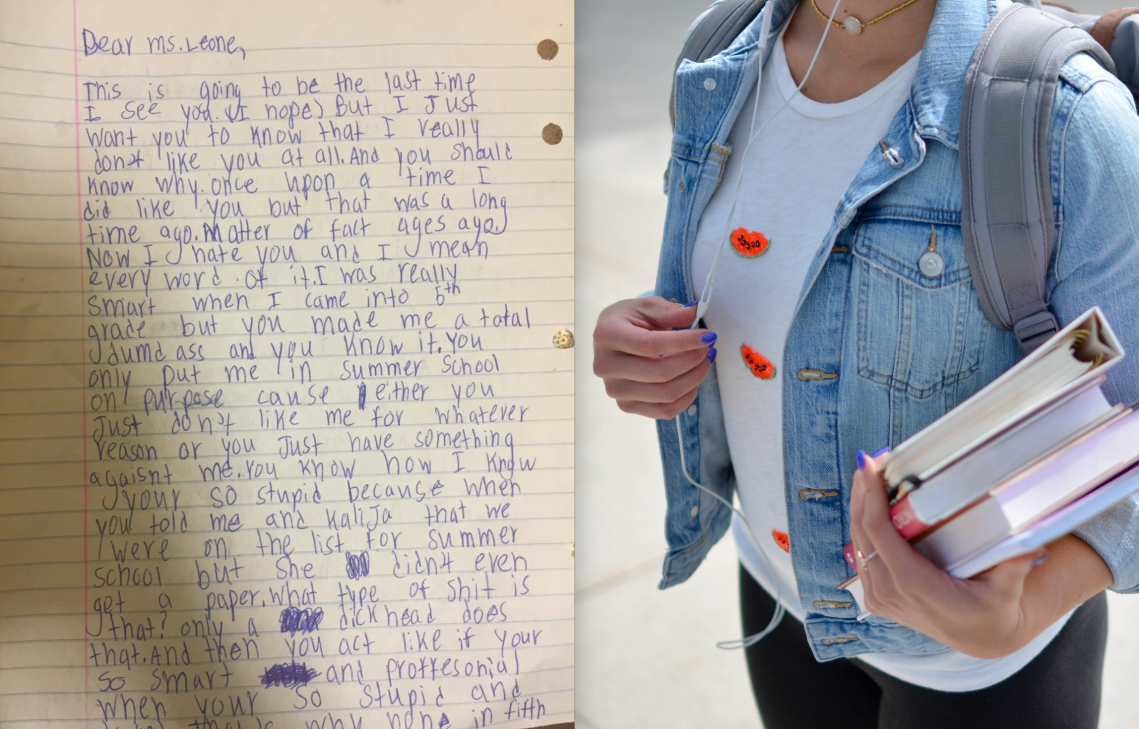 Dear ms. Leone,
This is going to be the last time
I see you. (I hope) But I Just
want you to know that I really
don't like you at all. And you should
know why. once upon a time I
did like you but that was a long
time ago. Matter of fact ages ago.
Now I hate you and I mean
every word of it. I was really
smart when I came into 5th
grade but you made me a total
dumd ass and you know it. you
only put me in summer school
on purpase cause either you
Just don't like me for whatever
reason or you Just have something
agaisnt me. you know how I know
your so stupid because when
you told me and Kalija that we
were on the list for summer
school but she didn't even
get a paper. what type of shit is
that? only a dickhead does
that. And then you act like if your
so smart and proffesonial
when your so stupid and
that's why none in fifth